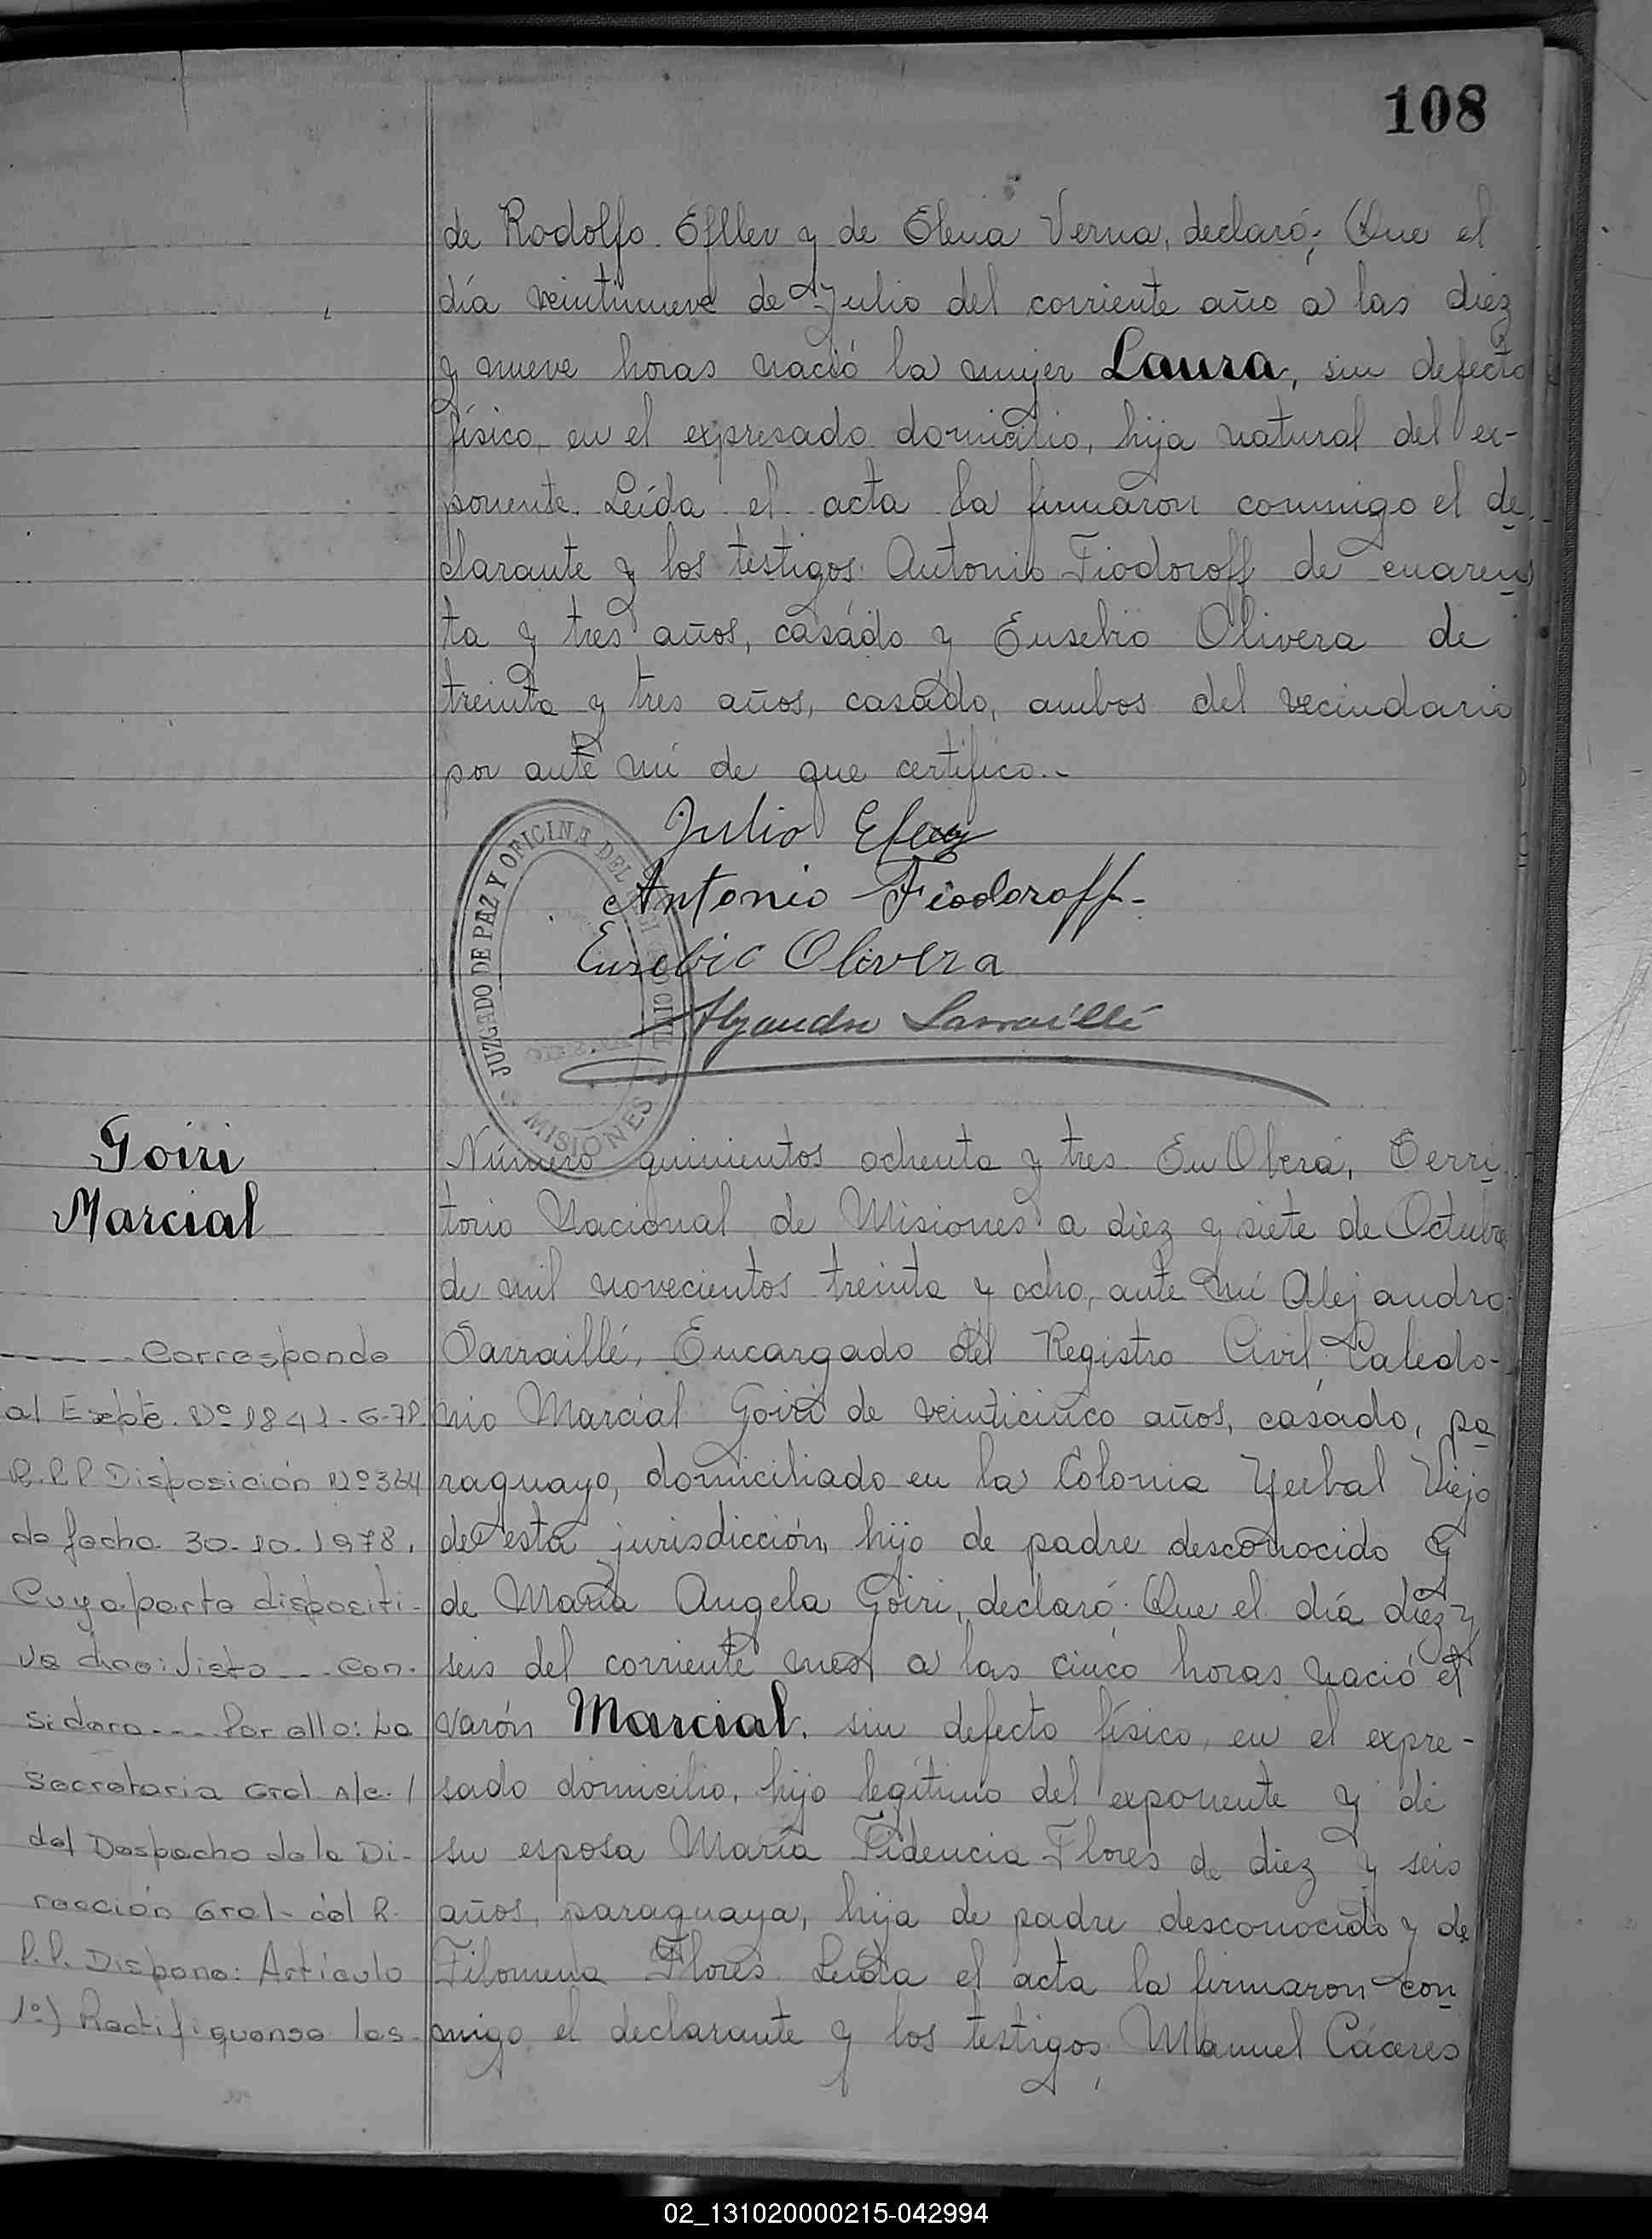 108
de Rodolfo Efller y de Elena Verna, declaró: Que el
día veintinueve de Julio del corriente año a las diez
y nueve horas nació la mujer Laura, sin defecto
físico, en el expresado domicilio, hija natural del ex-
ponente. Leída el acta la firmaron conmigo el de-
clarante y los testigos Antonio Fiodoroff de cuaren
ta y tres años, casado y Eusebio Olivera de
treinta y tres años, casado, ambos del vecindario
por ante mí de que certifico.-
Julio
Antonio Fiodoroff-
Eusebio Olivera
Alejandro Sarraillé
JUZGADO DE PAZ Y OFICINA DEL
MISIONES
Goiri
Marcial
Número quinientos ochenta y tres. En Oberá, Terri
torio Nacional de Misiones a diez y siete de Octubre
de mil novecientos treinta y ocho, ante mí Alejandro
Sarraillé, Encargado del Registro Civil, Caledo-
nio Marcial Goiri de veinticinco años, casado, pa
raguayo, domiciliado en la Colonia Yerbal Viejo
de esta jurisdicción, hijo de padre desconocido y
de María Angela Goiri, declaró: Que el día diez y
seis del corriente mes a las cinco horas nació el
varón Marcial, sin defecto físico, en el expre-
sado domicilio, hijo legítimo del exponente y de
su esposa María Fidencia Flores de diez y seis
años, paraguaya, hija de padre desconocido y de
Filomena Flores. Leída el acta la firmaron con
migo el declarante y los testigos Manuel Cáceres
------ Corresponde
al Expte. Nº 1841-G-78
R.P.P. Disposición Nº 364
de fecha 30-10-1978,
Cuya parte dispositi-
va dice: Visto --- Con-
sidera --- Por ello: La
Secretaria Gral. A/c. /
del Despacho de la Di-
rección Gral- del R.
P.P. Dispone: Artículo
1º) Rectifiquense las
02_131020000215-042994